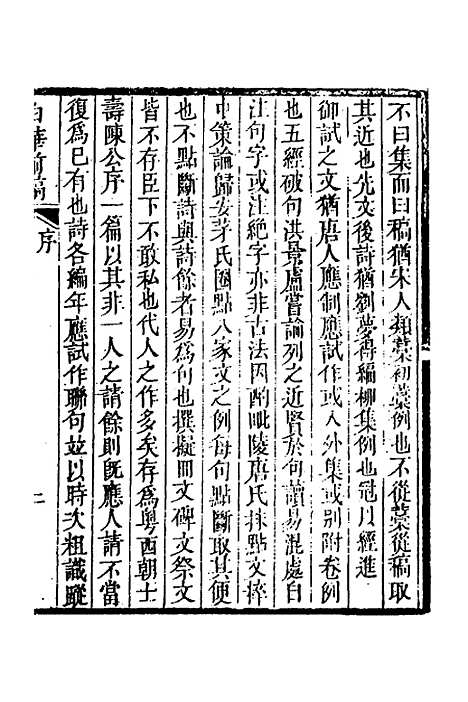 不曰集而曰稿猶宋人類藁初藁例也不從藁從稿取
其近也先文後詩猶劉夢得編柳集例也冠以經進
御試之文猶唐人應制應試作或入外集或別附卷例
也五經破句洪景盧嘗論列之近賢於句讀易混處自
注句字或注絶字亦非古法因酌毗陵唐氏抹點文粹
中策論歸安茅氏圈點八家文之例每句點斷取其便
也不點斷詩與詩餘者易為句也撰擬冊文碑文祭文
皆不存臣下不敢私也代人之作多矣存為粤西朝士
壽陳公序一篇以其非一人之請餘則旣應人請不當
復為已有也詩各編年應試作聯句並以時次粗識蹤
白華前稿
序
二